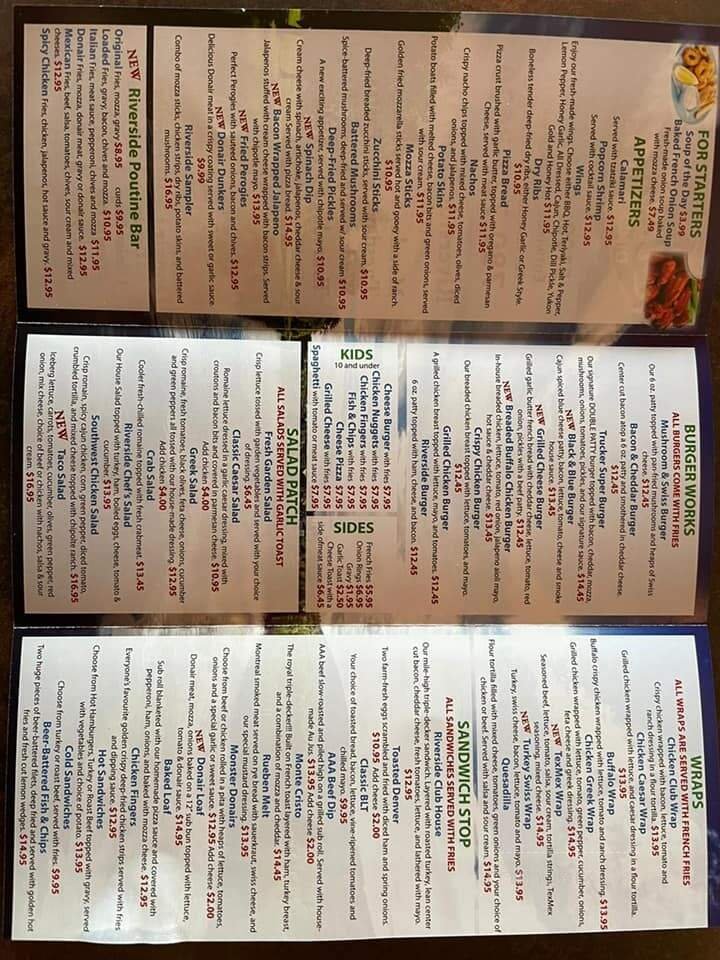 FOR STARTERS
Soup of the Day $3.99
Baked French Onion Soup
Fresh-made onion soup baked
with mozza cheese. $7.49
APPETIZERS
Calamari
Served with tzatziki sauce. $12.95
Popcorn Shrimp
Served with sauce. $12.95
Wings
Enjoy our fresh-made wings. Choose either BBQ, Hot, Teriyaki, Salt & Pepper,
Lemon Pepper, Honey Garlic, All Dressed, Cajun, Chipotle, Dill Pickle, Yukon
Gold and Honey Hot $11.95
Dry Ribs
Boneless tender deep-fried dry ribs, either Honey Garlic or Greek Style.
$10.95
Pizza Bread
Pizza crust brushed with garlic butter, topped with oregano & parmesan
Cheese, served with meat sauce $11.95
Nachos
Crispy nacho chips topped with mixed cheese, tomatoes, olives, diced
onions, and jalapenos. $11.95
Potato Skins
Potato boats filled with melted cheese, bacon bits and green onions, served
with sour cream. $11.95
Mozza Sticks
Golden fried mozzarella sticks served hot and gooey with a side of ranch.
$10.95
Zucchini Sticks
Deep-fried breaded zucchini sticks, served with sour cream. $10.95
Battered Mushrooms
Spice-battered mushrooms, deep-fried and served w/ sour cream $10.95
Deep-Fried Pickles
A new exciting appetizer, served with chipotle mayo. $10.95
NEW Spinach Dip
Cream cheese with spinach, artichoke jalapenos, cheddar cheese & sour
cream Served with pizza bread. $14.95
NEW Bacon Wrapped Jalapeno
Jalapenos stuffed with cream cheese wrapped with bacon strips. Served
with chipotle mayo. $13.95
NEW Fried Perogies
Perfect Perogies with sauteed onions, bacon and chives. $12.95
NEW Donair Dunkers
Delicious Donair meat in a crispy coating served with sweet or garlic sauce
$9.99
Riverside Sampler
Combo of mozza sticks, chicken strips, dry ribs, potato skins, and battered
mushrooms. $16.95
NEW Riverside Poutine Bar
Original Fries, mozza, gravy $8.95 curds $9.95
Loaded Fries, gravy, bacon, chives and mozza. $10.95
Italian Fries, meat sauce, pepperoni, chives and mozza $11.95
Donair Fries, mozza, donair meat, gravy or donair sauce. $12.95
Mexican Fries, beef, salsa, tomatoes, chives, sour cream and mixed
cheeses. $12.95
Spicy Chicken Fries, chicken, jalapenos, hot sauce and gravy. $12.95
BURGER WORKS
ALL BURGERS COME WITH FRIES
Mushroom & Swiss Burger
Our 6 oz. patty topped with pan-fried mushrooms and heaps of Swiss
cheese. $12.45
Bacon & Cheddar Burger
Center cut bacon atop a 6 oz. patty and smothered in cheddar cheese.
$12.45
Trucker Supreme Burger
Our signature DOUBLE PATTY burger topped with bacon, cheddar, mozza,
mushrooms, onions, tomatoes, pickles, and our signature sauce. $14.45
NEW Black & Blue Burger
Cajun spiced blue cheese burger topped with lettuce, tomato, cheese and smoke
house sauce. $13.45
NEW Grilled Cheese Burger
Grilled garlic butter french bread with cheddar cheese, lettuce, tomato, red
onion, pickles, and mayo. $12.45
NEW Breaded Buffalo Chicken Burger
In-house breaded chicken, lettuce, tomato, red onion, jalapeno aioli mayo,
hot sauce & cheddar cheese. $13.45
Crispy Chicken Burger
Our breaded chicken breast topped with lettuce, tomatoes, and mayo.
$12.45
Grilled Chicken Burger
A grilled chicken breast topped with lettuce, mayo, and tomatoes. $12.45
Riverside Burger
6 oz. patty topped with ham, cheese, and bacon. $12.45
KIDS
10 and under
Cheese Burger with fries $7.95
Chicken Nuggets with fries $7.95
Chicken Fingers with fries $7.95
Fish & Chips with fries $7.95
Cheese Pizza $7.95
Grilled Cheese with fries $7.95
Spaghetti with tomato or meat sauce $7.95
SIDES
French Fries $5.95
Onion Rings $6.95
Gravy $1.95
Garlic Toast $2.50
Cheese Toast with a
side of meat sauce $6.45
SALAD PATCH
ALL SALADS SERVED WITH GARLIC TOAST
Fresh Garden Salad
Crisp lettuce tossed with garden vegetables and served with your choice
of dressing. $6.45
Classic Caesar Salad
Romaine lettuce dressed in a garlic caesar dressing, mixed with
croutons and bacon bits and slathered in parmesan cheese. $10.95
Add chicken $4.00
Greek Salad
Crisp romaine, fresh tomatoes, black olives, feta cheese, onions, cucumber
and green peppers all tossed with our house-made dressing. $12.95
Add chicken $4.00
Crab Salad
Cooler fresh-chilled romaine topped with fresh crabmeat. $13.45
Riverside Chef's Salad
Our House Salad topped with turkey, ham, boiled eggs, cheese, tomato &
cucumber. $13.95
Southwest Chicken Salad
Crisp romain, spicy cajun chicken, corn, green pepper, diced tomato,
crumbled tortilla, and mixed cheese tossed with chipotle ranch. $16.95
NEW Taco Salad
Iceberg lettuce, carrots, tomatoes, cucumber, olives, green pepper, red
onion, mix cheese, choice of beef or chicken with nachos, salsa & sour
cream. $16.95
WRAPS
ALL WRAPS ARE SERVED WITH FRENCH FRIES
Chicken Wrap
Crispy chicken wrapped with bacon, lettuce, tomato and
ranch dressing in a flour tortilla. $13.95
Chicken Caesar Wrap
Grilled chicken wrapped with lettuce and caesar dressing in a flour tortilla.
$13.95
Buffalo Wrap
Buffalo crispy chicken wrapped with lettuce, tomato, and ranch dressing. $13.95
Chicken Greek Wrap
Grilled chicken wrapped with lettuce, tomato, green pepper, cucumber, onions,
feta cheese and greek dressing. $14.95
NEW TexMex Wrap
Seasoned beef, lettuce, tomato, salsa, sour cream, tortilla strings, TexMex
seasoning, mixed cheese. $14.95
NEW Turkey Swiss Wrap
Turkey, swiss cheese, bacon, lettuce, tomato and mayo. $13.95
Quesadilla
Flour tortilla filled with mixed cheese, tomatoes, green onions and your choice of
chicken or beef. Served with salsa and sour cream. $14.95
SANDWICH STOP
ALL SANDWICHES SERVED WITH FRIES
Riverside Club House
Our mile-high triple-decker sandwich. Layered with roasted turkey, lean center
cut bacon, cheddar cheese, fresh tomatoes, lettuce, and lathered with mayo.
$12.95
Toasted Denver
Two farm-fresh eggs scrambled and fried with diced ham and spring onions.
$10.95 Add cheese $2.00
Classic BLT
Your choice of toasted bread, bacon, lettuce, vine-ripened tomatoes and
chilled mayo. $9.95
AAA Beef Dip
AAA beef slow-roasted and piled high on a grilled sub roll. Served with house-
made Au Jus. $13.95 Add cheese $2.00
Monte Cristo
The royal triple-decker!!! Built on French toast layered with ham, turkey breast,
and a combination of mozza and cheddar. $14.45
Rueben Melt
Montreal smoked meat served on rye bread with sauerkraut, swiss cheese, and
our special mustard dressing. $13.95
Monster Donairs
Choose from beef or chicken wrapped in a pita with heaps of lettuce, tomatoes,
onions and a special garlic or sweet sauce. $12.75 Add cheese $2.00
NEW Donair Loaf
Donair meat, mozza, onions baked on a 12" sub bun topped with lettuce,
tomato & donair sauce. $14.95
Baked Loaf
Sub roll blanketed with our homemade pizza sauce and covered with
pepperoni, ham, onions, and baked with mozza cheese. $12.95
Chicken Fingers
Everyone's favourite golden crisp deep-fried chicken strips served with fries
and dipping sauce. $12.95
Hot Sandwiches
Choose from Hot Hamburgers, Turkey or Roast Beef topped with gravy, served
with vegetables and choice of potato. $13.95
Cold Sandwiches
Choose from turkey, ham or roast beef served with fries. $9.95
Beer-Battered Fish & Chips
Two huge pieces of beer-battered filets, deep fried and served with golden hot
fries and fresh cut lemon wedges. $14.95